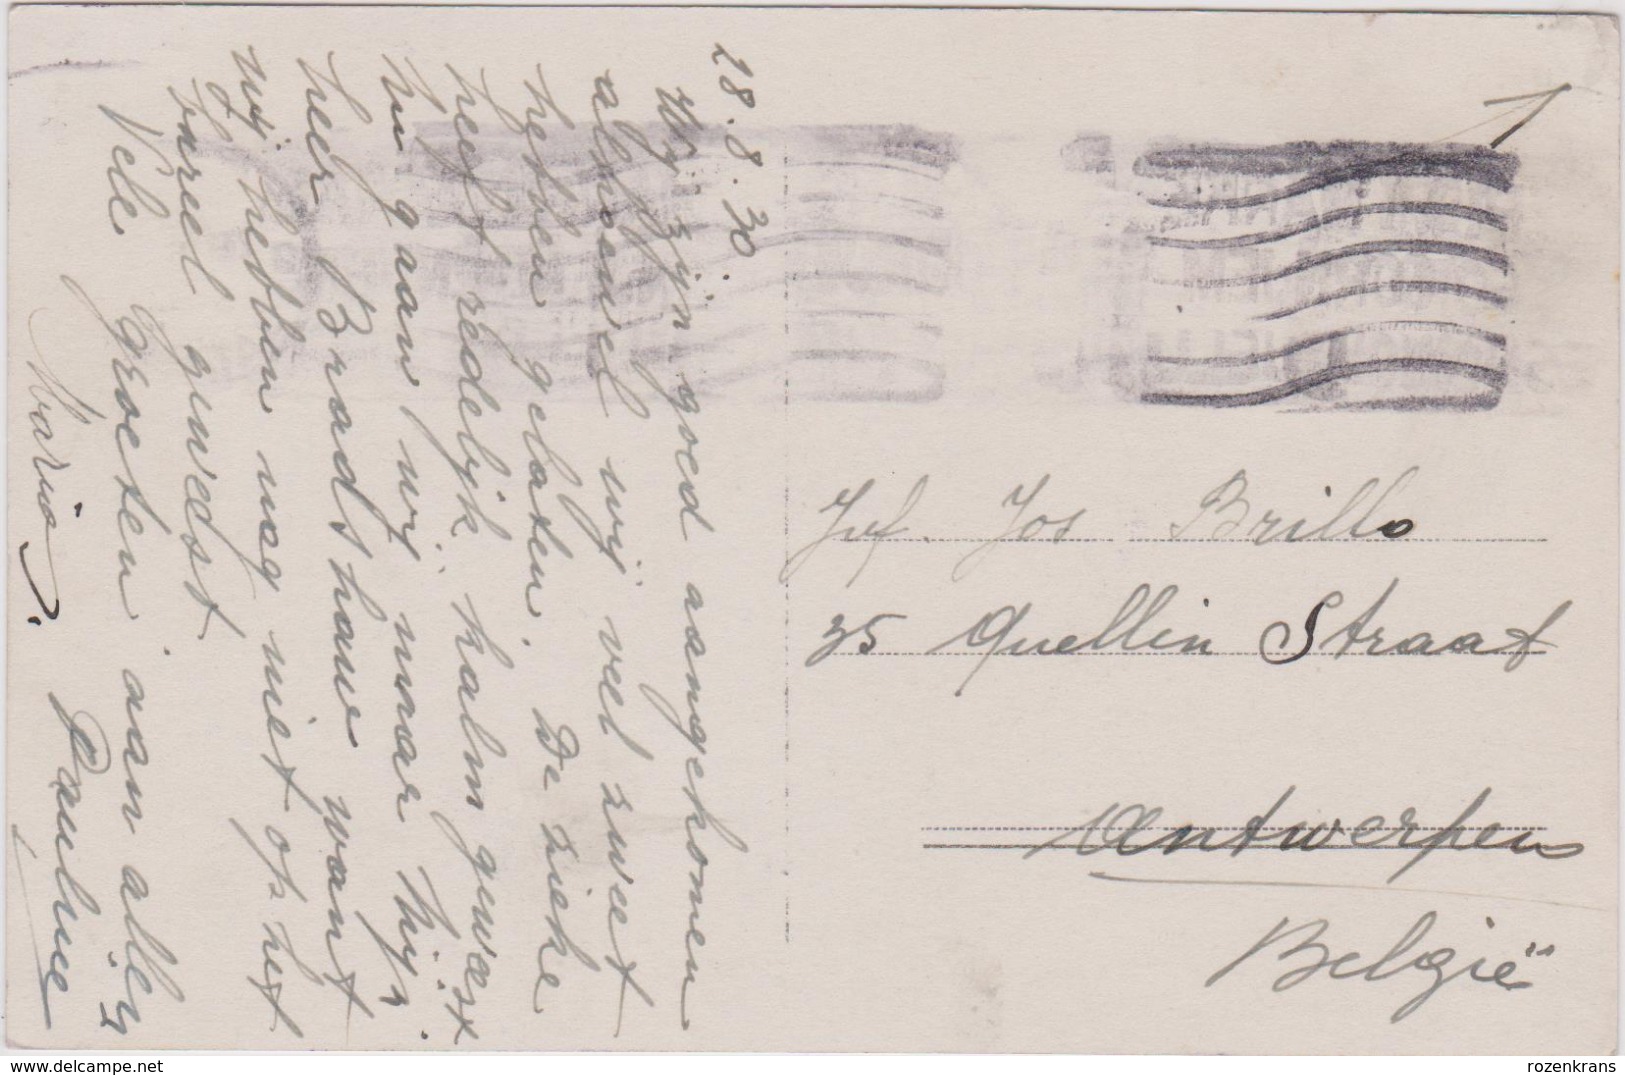 28.8.30
Wij zijn goed aangekomen
alhoewel wij veel zweet
hebben gelaten. De zieke
heeft redelijk kalm geweest
nu gaan wij naar Mijn
heer Bradt haw want
wij hebben nog niet op het
bureel geweest
Vele groeten aan allen
Maria. Pauline
Juf. Jos Brillo
35 Quellin Straat
Antwerpen
België
www.delcampe.net
rozenkrans